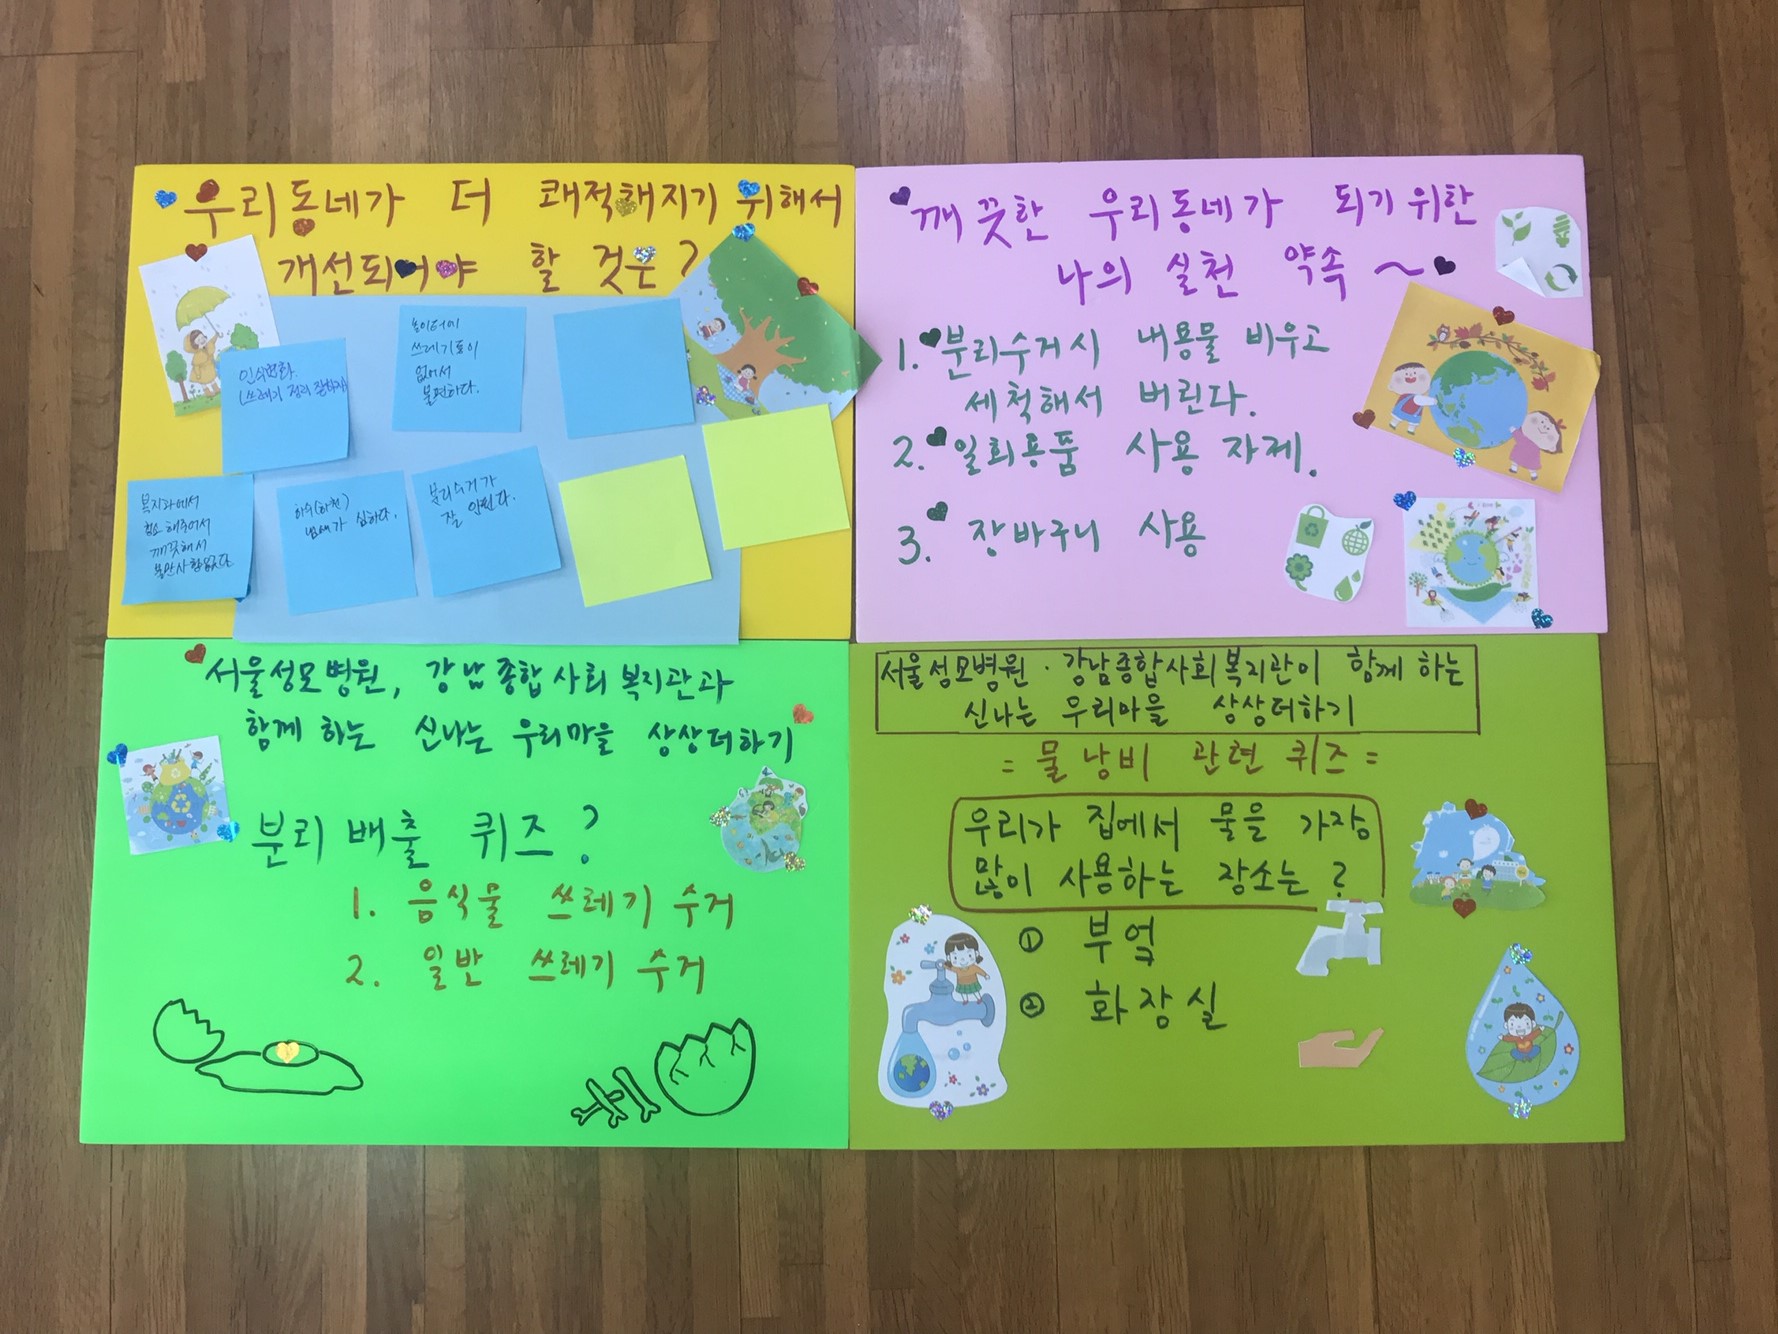 우리동네가 더 쾌적해지기 위해서
개선되어야 할 것은?
인식변화.
(쓰레기 정리 잘하자)
놀이터에
쓰레기통이
없어서
불편하다.
복지관에서
청소해주어서
깨끗해서
불만사항없다.
하수(하천)
냄새가 심하다.
분리수거가
잘 안된다.
깨끗한 우리동네가 되기 위한
나의 실천 약속 ~
1. 분리수거시 내용물 비우고
세척해서 버린다.
2. 일회용품 사용 자제.
3. 장바구니 사용
서울성모병원, 강남종합사회복지관과
함께 하는 신나는 우리마을 상상더하기
분리배출 퀴즈?
1. 음식물 쓰레기 수거
2. 일반 쓰레기 수거
서울성모병원 · 강남종합사회복지관이 함께 하는
신나는 우리마을 상상더하기
= 물낭비 관련 퀴즈 =
우리가 집에서 물을 가장
많이 사용하는 장소는?
① 부엌
② 화장실